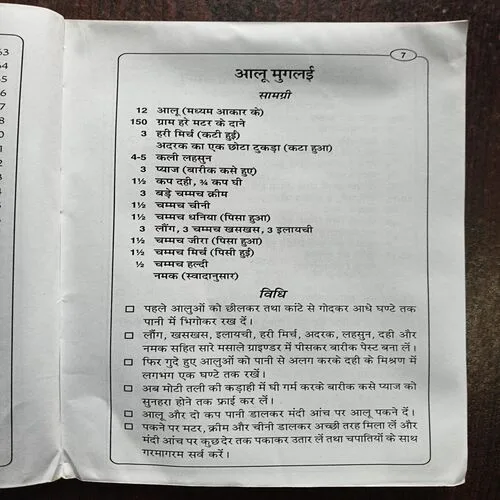 63
64
65
6
7
8
0
1
2
3
4
5
7
आलू मुगलई
सामग्री
12 आलू (मध्यम आकार के)
150 ग्राम हरे मटर के दाने
3 हरी मिर्च (कटी हुई)
अदरक का एक छोटा टुकड़ा (कटा हुआ)
4-5 कली लहसुन
3 प्याज (बारीक कसे हुए)
1½ कप दही, ¾ कप घी
3 बड़े चम्मच क्रीम
1½ चम्मच चीनी
1½ चम्मच धनिया (पिसा हुआ)
3 लौंग, 3 चम्मच खसखस, 3 इलायची
1½ चम्मच जीरा (पिसा हुआ)
1½ चम्मच मिर्च (पिसी हुई)
½ चम्मच हल्दी
नमक (स्वादानुसार)
विधि
पहले आलुओं को छीलकर तथा कांटे से गोदकर आधे घण्टे तक
पानी में भिगोकर रख दें।
लौंग, खसखस, इलायची, हरी मिर्च, अदरक, लहसुन, दही और
नमक सहित सारे मसाले ग्राइण्डर में पीसकर बारीक पेस्ट बना लें।
फिर गुदे हुए आलुओं को पानी से अलग करके दही के मिश्रण में
लगभग एक घण्टे तक रखें।
अब मोटी तली की कड़ाही में घी गर्म करके बारीक कसे प्याज को
सुनहरा होने तक फ्राई कर लें।
आलू और दो कप पानी डालकर मंदी आंच पर आलू पकने दें।
पकने पर मटर, क्रीम और चीनी डालकर अच्छी तरह मिला लें और
मंदी आंच पर कुछ देर तक पकाकर उतार लें तथा चपातियों के साथ
गरमागरम सर्व करें।